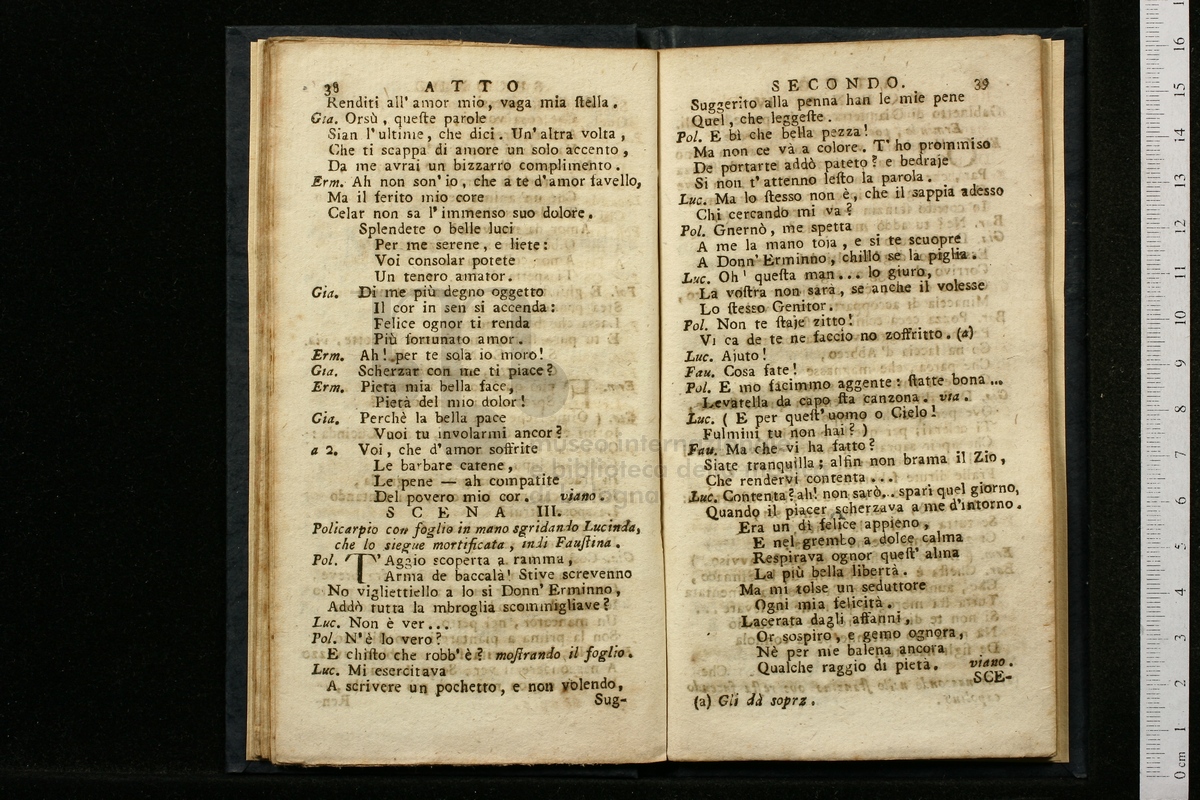 38 ATTO
Renditi all' amor mio, vaga mia ſtella.
Gia. Orsù, queſte parole
Sian l'ultime, che dici. Un'altra volta,
Che ti scappa di amore un solo accento,
Da me avrai un bizzarro complimento.
Erm. Ah non son' io, che a te d'amor favello,
Ma il ferito mio core
Celar non sa l'immenso suo dolore.
Splendete o belle luci
Per me serene, e liete:
Voi consolar potete
Un tenero amator.
Gia. Di me più degno oggetto
Il cor in sen si accenda:
Felice ognor ti renda
Più fortunato amor.
Erm. Ah! per te sola io moro!
Gia. Scherzar con me ti piace?
Erm. Pietà mia bella face,
Pietà del mio dolor!
Gia. Perchè la bella pace
Vuoi tu involarmi ancor?
a 2. Voi, che d'amor soffrite
Le barbare catene,
Le pene — ah compatite
Del povero mio cor. viano.
SCENA III.
Policarpio con foglio in mano sgridando Lucinda,
che lo siegue mortificata, indi Fauſtina.
Pol. T'Aggio scoperta a ramma,
Arma de baccalà! Stive screvenno
No vigliettiello a lo si Donn' Erminno,
Addò tutta la mbroglia scommigliave?
Luc. Non è ver...
Pol. N'è lo vero?
E chiſto che robb' è? moſtrando il foglio.
Luc. Mi esercitava
A scrivere un pochetto, e non volendo,
Sug-
SECONDO. 39
Suggerito alla penna han le mie pene
Quel, che leggeſte.
Pol. E bì che bella pezza!
Ma non ce và a colore. T' ho prommiso
De portarte addò pateto? e bedraje
Si non t'attenno leſto la parola.
Luc. Ma lo ſtesso non è, che il sappia adesso
Chi cercando mi va?
Pol. Gnernò, me spetta
A me la mano toja, e si te scuopre
A Donn' Erminno, chillo se la piglia.
Luc. Oh! queſta man... lo giuro,
La voſtra non sarà, se anche il volesse
Lo ſtesso Genitor.
Pol. Non te ſtaje zitto!
Vi ca de te ne faccio no zoffritto. (a)
Luc. Ajuto!
Fau. Cosa fate!
Pol. E mo facimmo aggente: ſtatte bona...
Levatella da capo ſta canzona. via.
Luc. ( E per queſt' uomo o Cielo!
Fulmini tu non hai? )
Fau. Ma che vi ha fatto?
Siate tranquilla; alfin non brama il Zio,
Che rendervi contenta...
Luc. Contenta? ah! non sarò.. sparì quel giorno,
Quando il piacer scherzava a me d'intorno.
Era un dì felice appieno,
E nel grembo a dolce calma
Respirava ognor queſt' alma
La più bella libertà.
Ma mi tolse un seduttore
Ogni mia felicità.
Lacerata dagli affanni,
Or sospiro, e gemo ognora,
Nè per me balena ancora
Qualche raggio di pietà. viano.
SCE-
(a) Gli dà sopra.